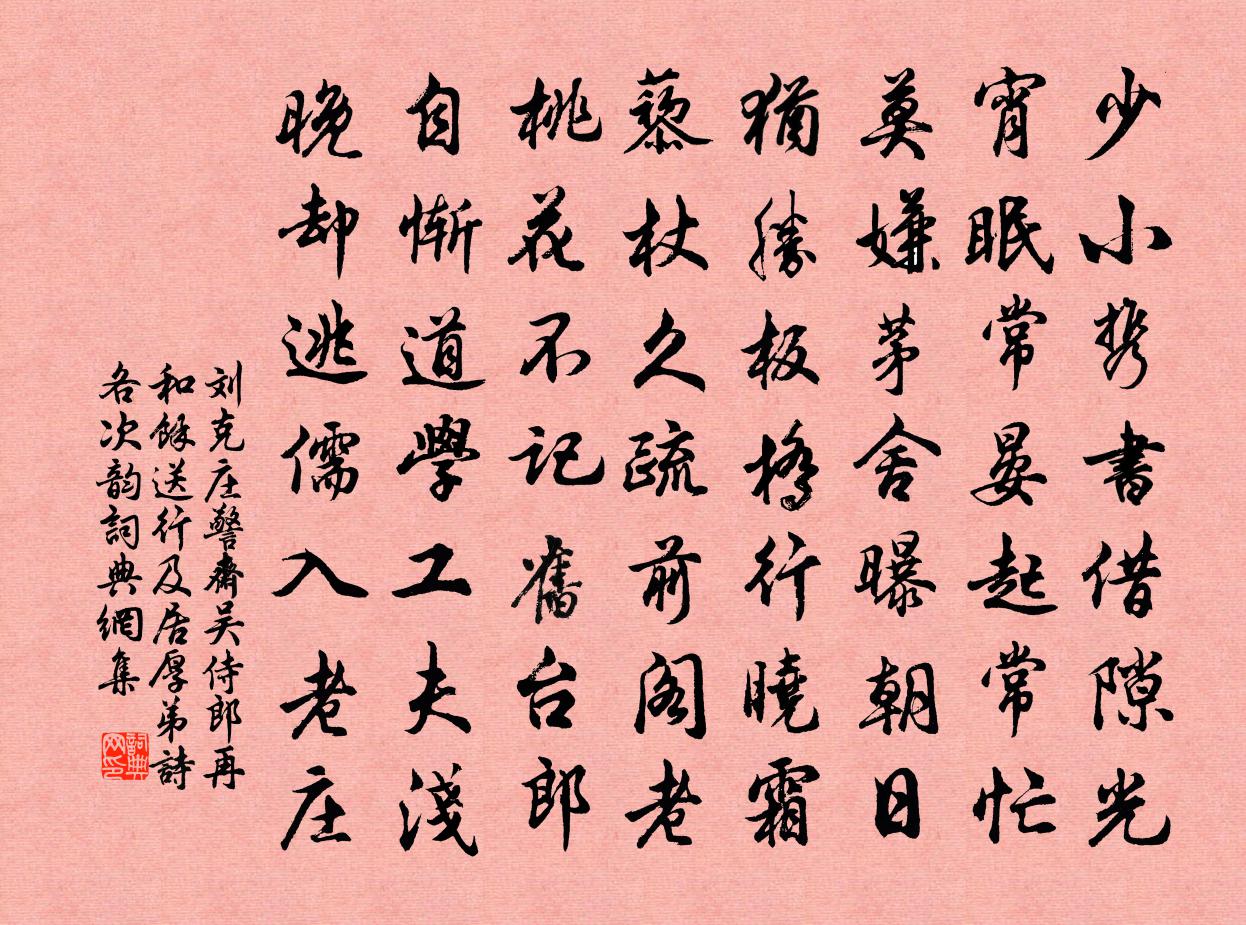 少小携書借隙光
宵眠常晏起常忙
莫嫌茅舍曝朝日
猶勝板橋行曉霜
藜杖久疏前阁老
桃花不记舊台郎
自慚道學工夫淺
晚却逃儒入老庄
刘克庄警齋吴侍郎再
和餘送行及居厚弟詩
各次韵詞典網集
詞典网印